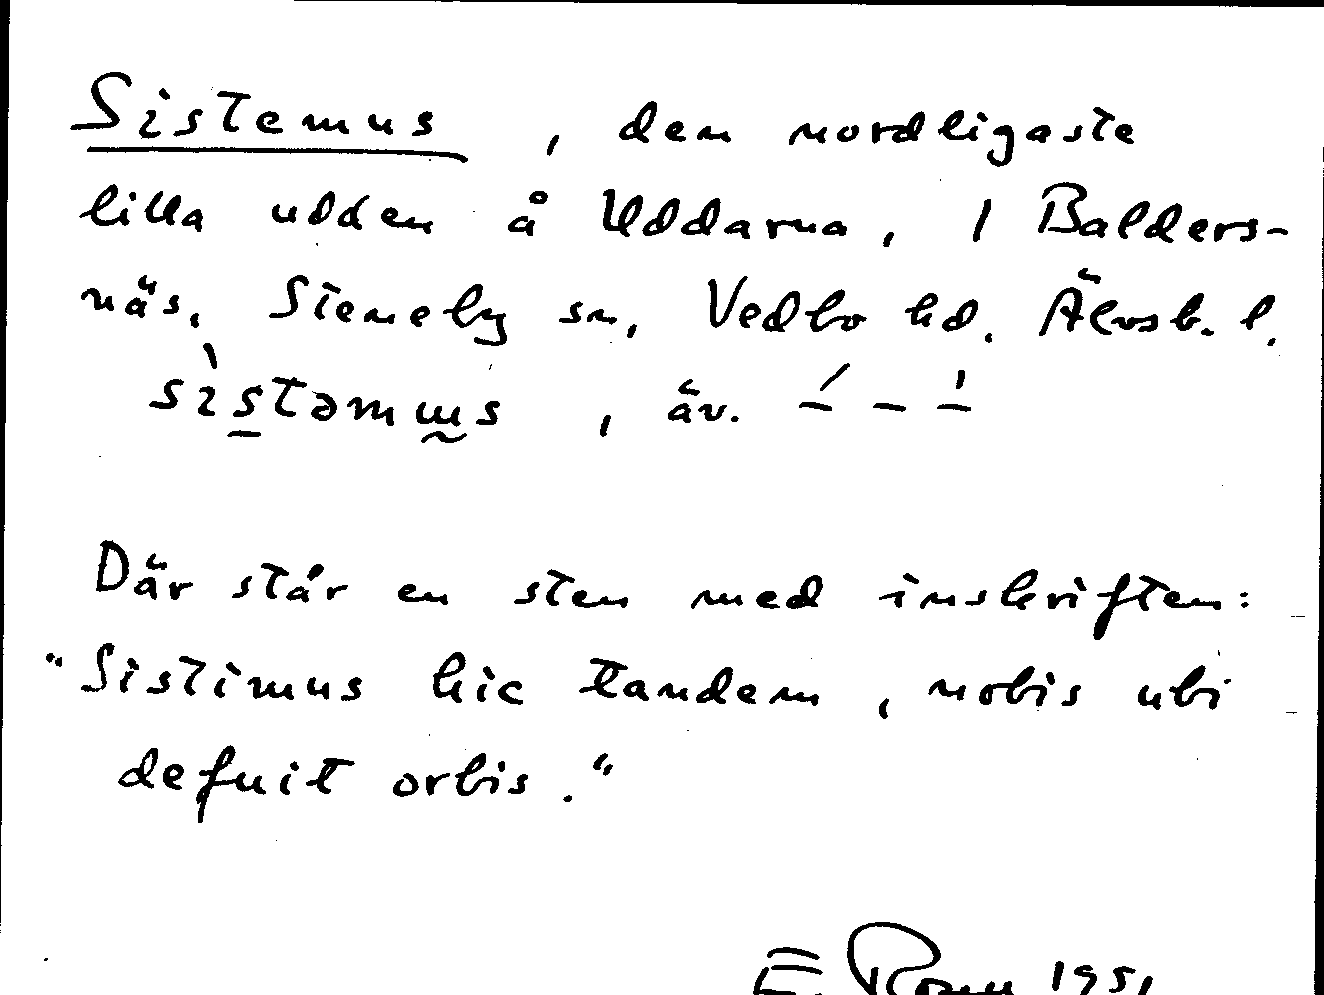 Sistemus, den nordligaste
lilla udden å Uddarna, 1 Balders-
näs, Steneby sn, Vedbo hd. Älvsb. l.
sìstəmɯs, äv. ́– – –̍
Där står en sten med inskriften:
"Sistimus hic tandem, nobis ubi
defuit orbis."
E. 1951